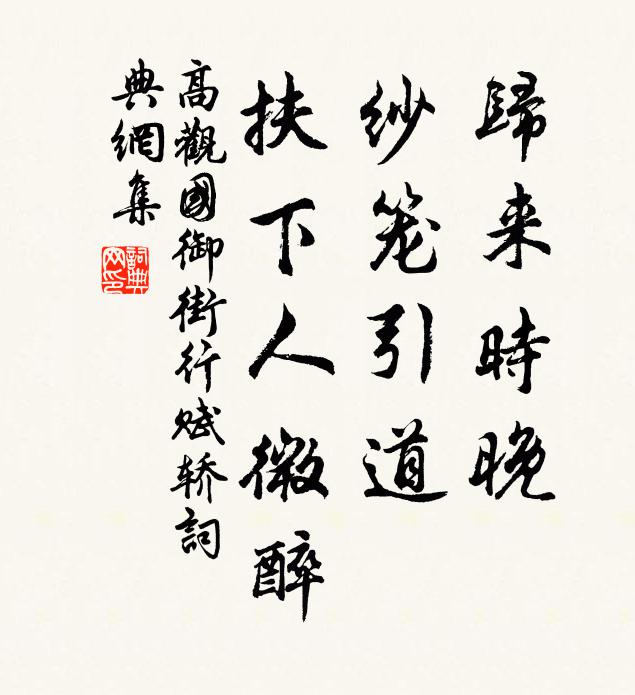 歸来時晚
纱笼引道
扶下人微醉
高觀國御街行赋轿詞
典網集
詞典網印